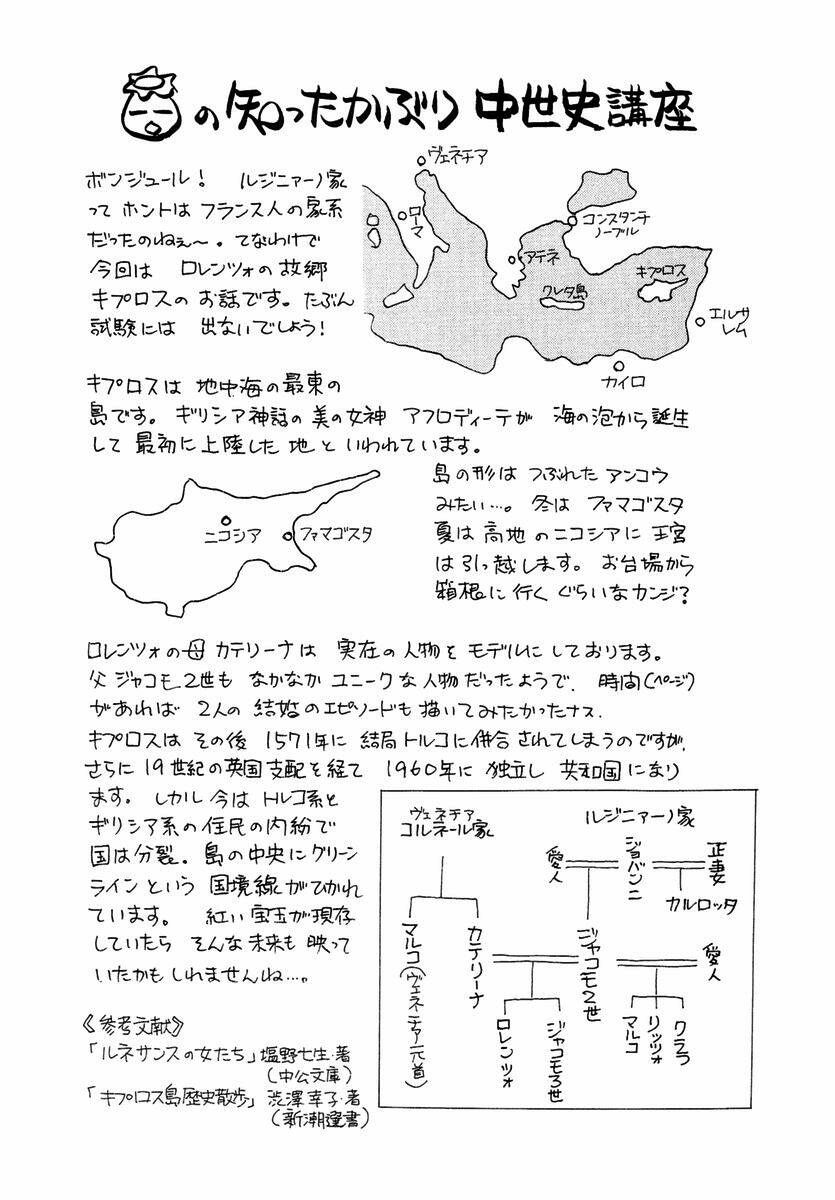 の知ったかぶり 中世史講座
ボンジュール! ルジニァーノ家
って ホントは フランス人の家系
だったのねぇ～。てなわけで
今回は ロレンツォの故郷
キプロスの お話です。たぶん
試験には 出ないでしょう!
ヴェネチア
ローマ
コンスタンチ
ノープル
アテネ
クレタ島
キプロス
エルサ
レム
カイロ
キプロスは 地中海の最東の
島です。ギリシア神話の美の女神 アフロディーテが 海の泡から誕生
して 最初に上陸した地 と いわれています。
ニコシア
ファマゴスタ
島の形は つぶれた アンコウ
みたい…。冬は ファマゴスタ
夏は 高地のニコシアに 王宮
は引っ越します。 お台場から
箱根に 行く ぐらいな カンジ?
ロレンツォの母 カテリーナは 実在の人物を モデルに しております。
父 ジャコモ2世も なかなか ユニークな人物だったようで、時間(ページ)
があれば 2人の 結婚のエピソードも描いてみたかったナス.
キプロスは その後 1571年に 結局トルコに併合されてしまうのですが,
さらに 19世紀の英国支配を経て 1960年に 独立し 共和国になり
ます。しかし今は トルコ系と
ギリシア系の住民の内紛で
国は分裂。島の中央にグリーン
ラインという 国境線がひかれ
ています。 紅い宝玉が現存
していたら そんな未来も 映って
いたかも しれませんね…。
《参考文献》
「ルネサンスの女たち」塩野七生・著
(中公文庫)
「キプロス島歴史散歩」渋澤幸子・著
(新潮選書)
ヴェネチア
コルネール家
ルジニァーノ家
愛人
ジョバンニ
正妻
カルロッタ
マルコ(ヴェネチア元首)
カテリーナ
ジャコモ2世
愛人
ロレンツォ
ジャコモ3世
マルコ
リッツォ
クララ